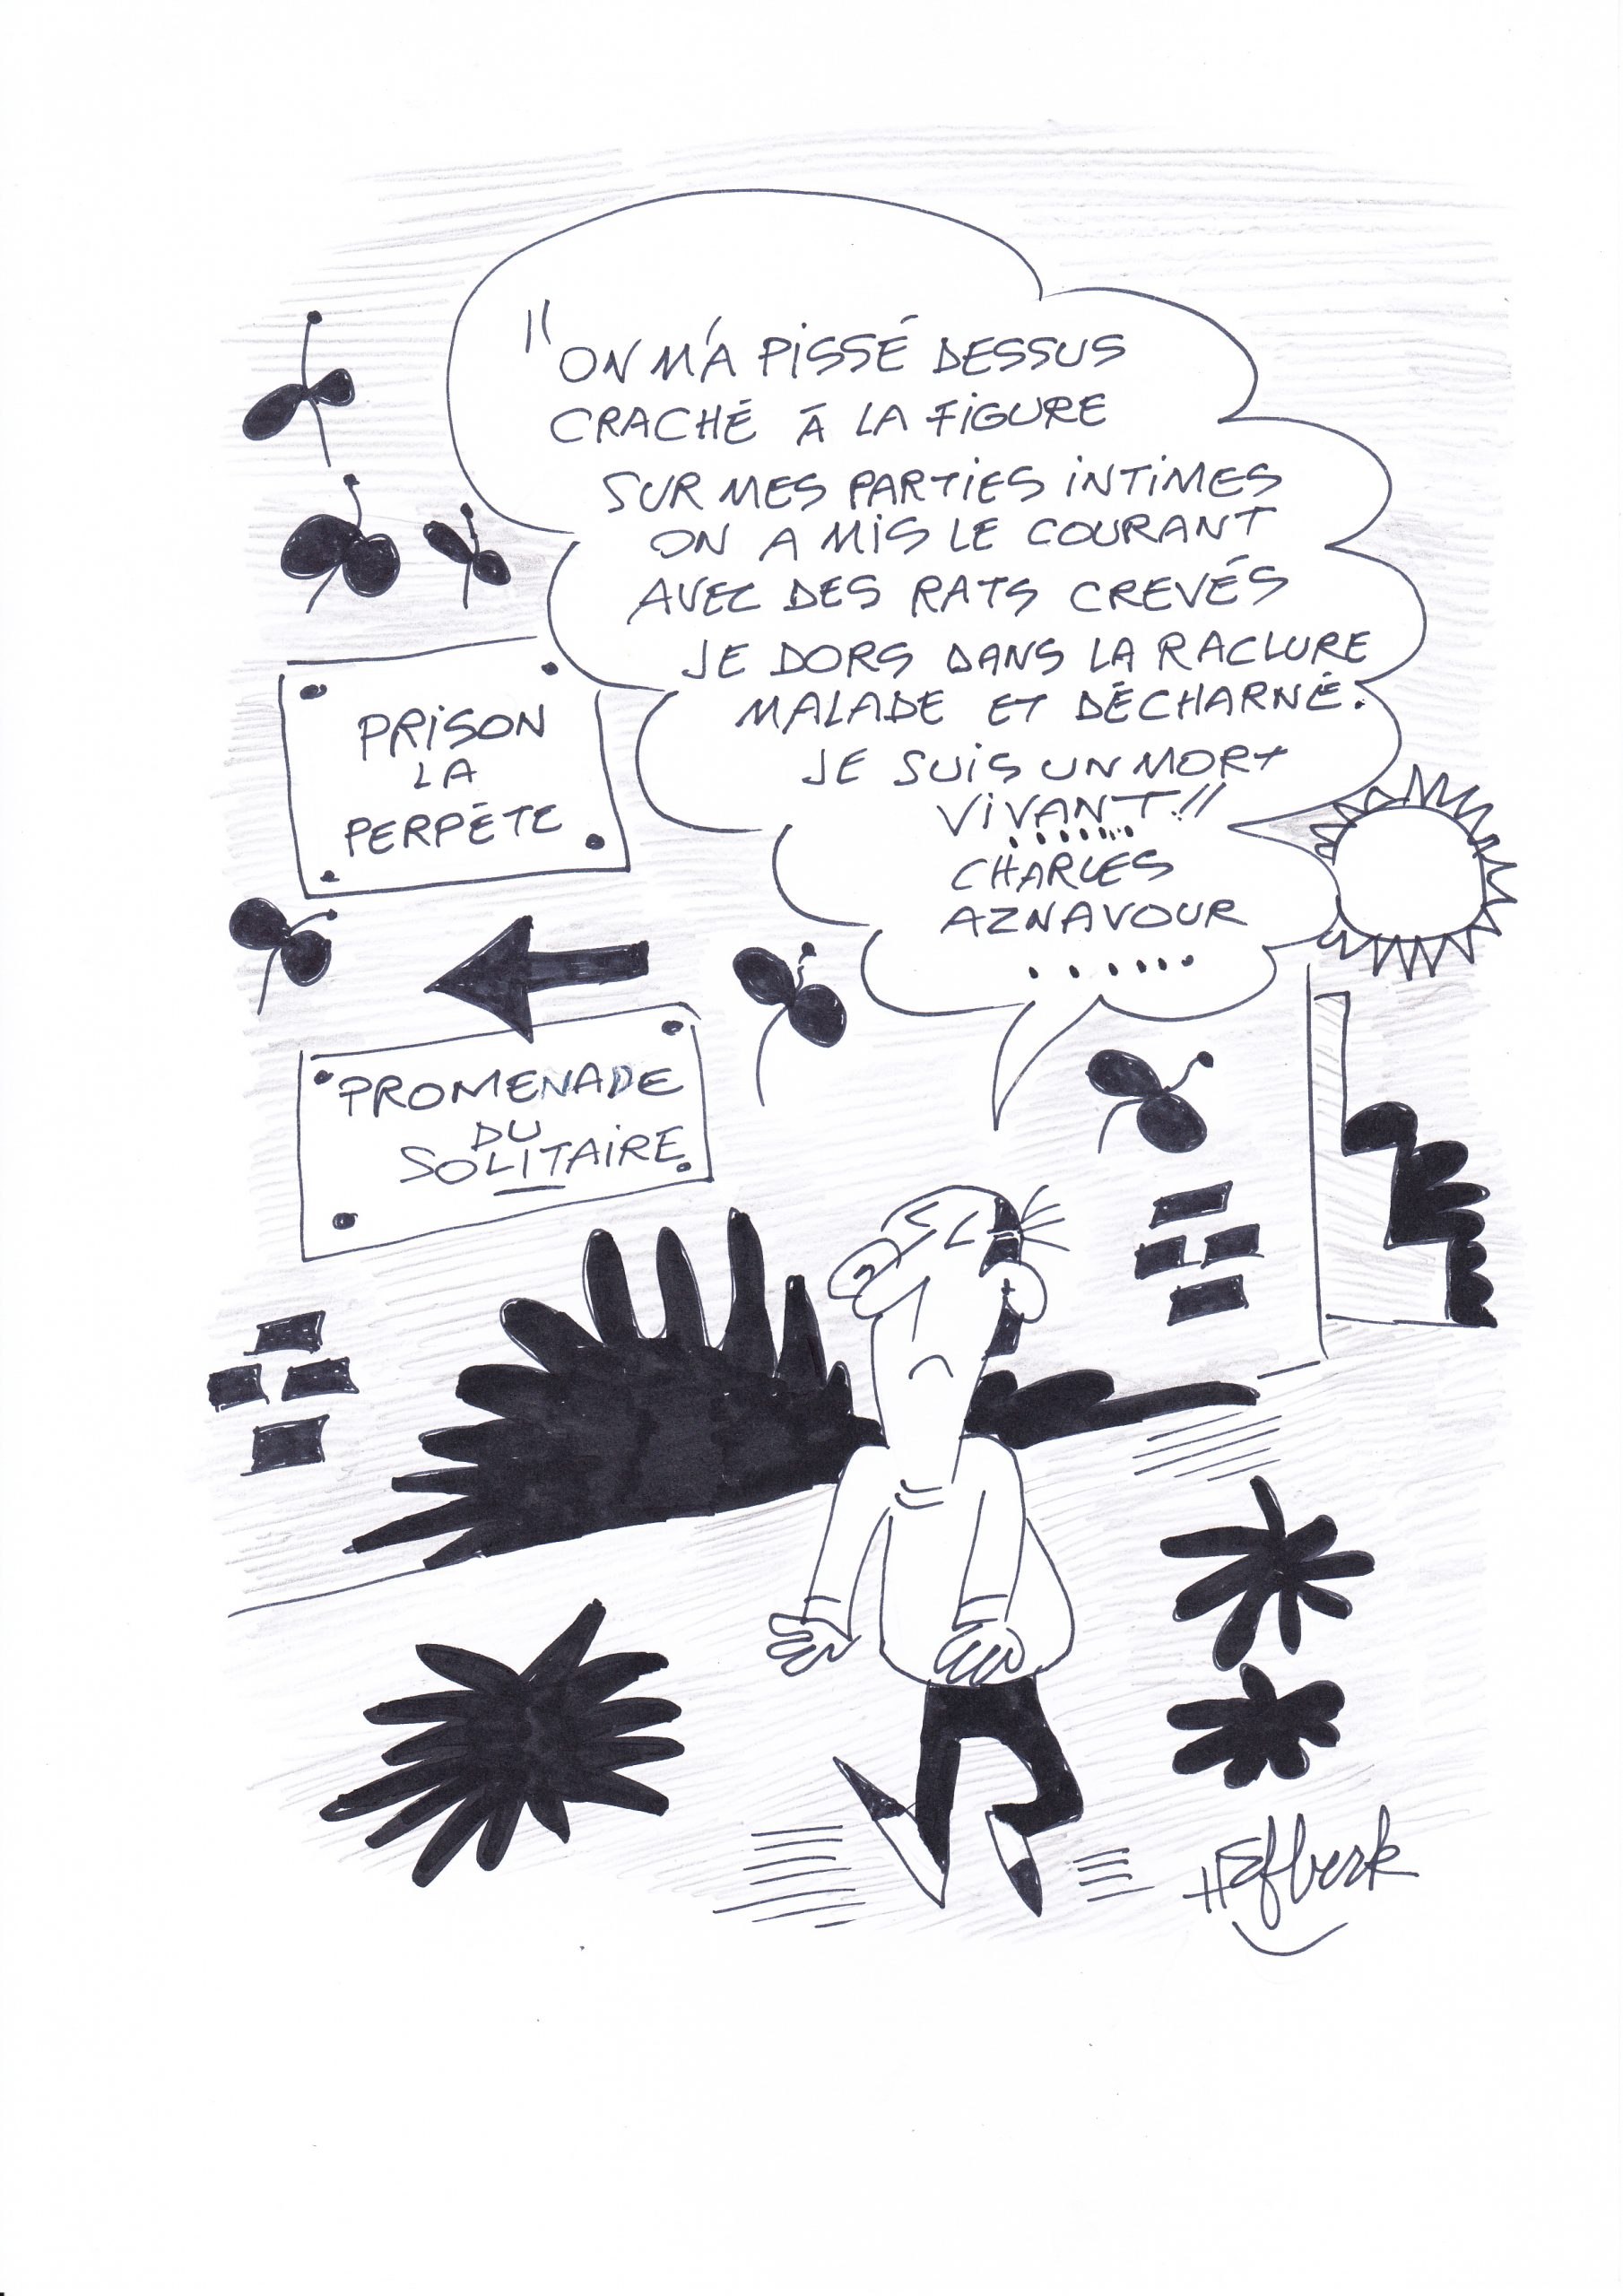 "ON M'A PISSÉ DESSUS
CRACHÉ À LA FIGURE
SUR MES PARTIES INTIMES
ON A MIS LE COURANT
AVEC DES RATS CREVÉS
JE DORS DANS LA RACLURE
MALADE ET DÉCHARNÉ.
JE SUIS UN MORT
VIVANT!!
.......
CHARLES
AZNAVOUR
......
PRISON
LA
PERPÈTE
PROMENADE
DU
SOLITAIRE